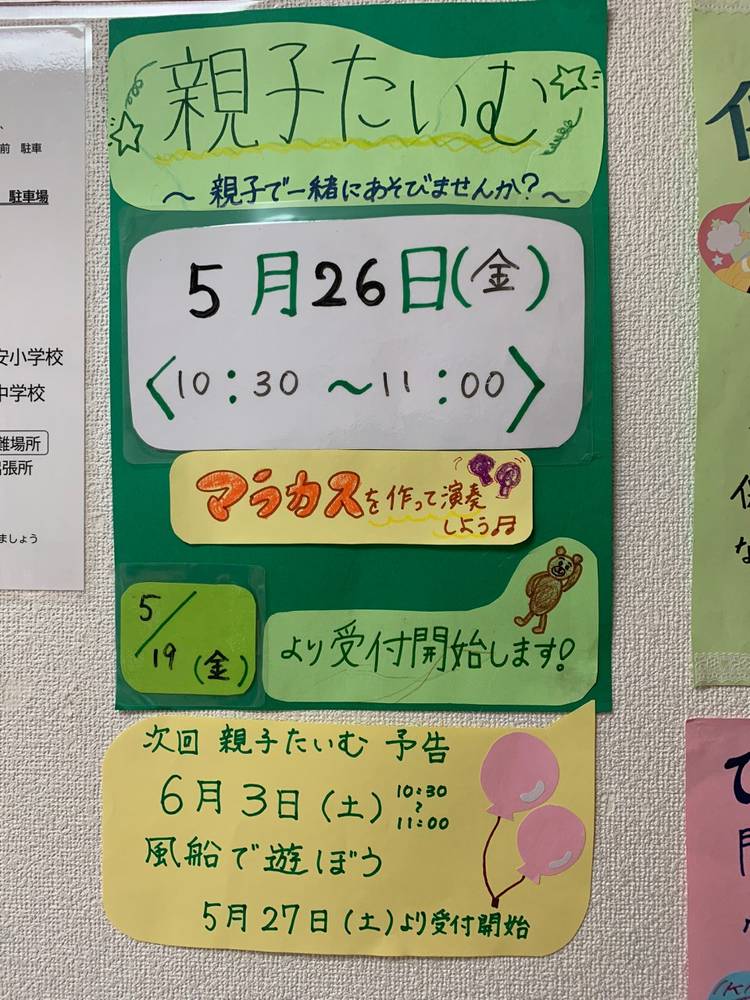 親子たいむ
〜 親子で一緒にあそびませんか? 〜
5月26日(金)
〈10:30 〜 11:00〉
マラカスを作って演奏
しよう♫
5/19(金)
より受付開始します!
次回 親子たいむ 予告
6月3日(土) 10:30〜11:00
風船で遊ぼう
5月27日(土)より受付開始
前 駐車
駐車場
安小学校
中学校
難場所
ましょう